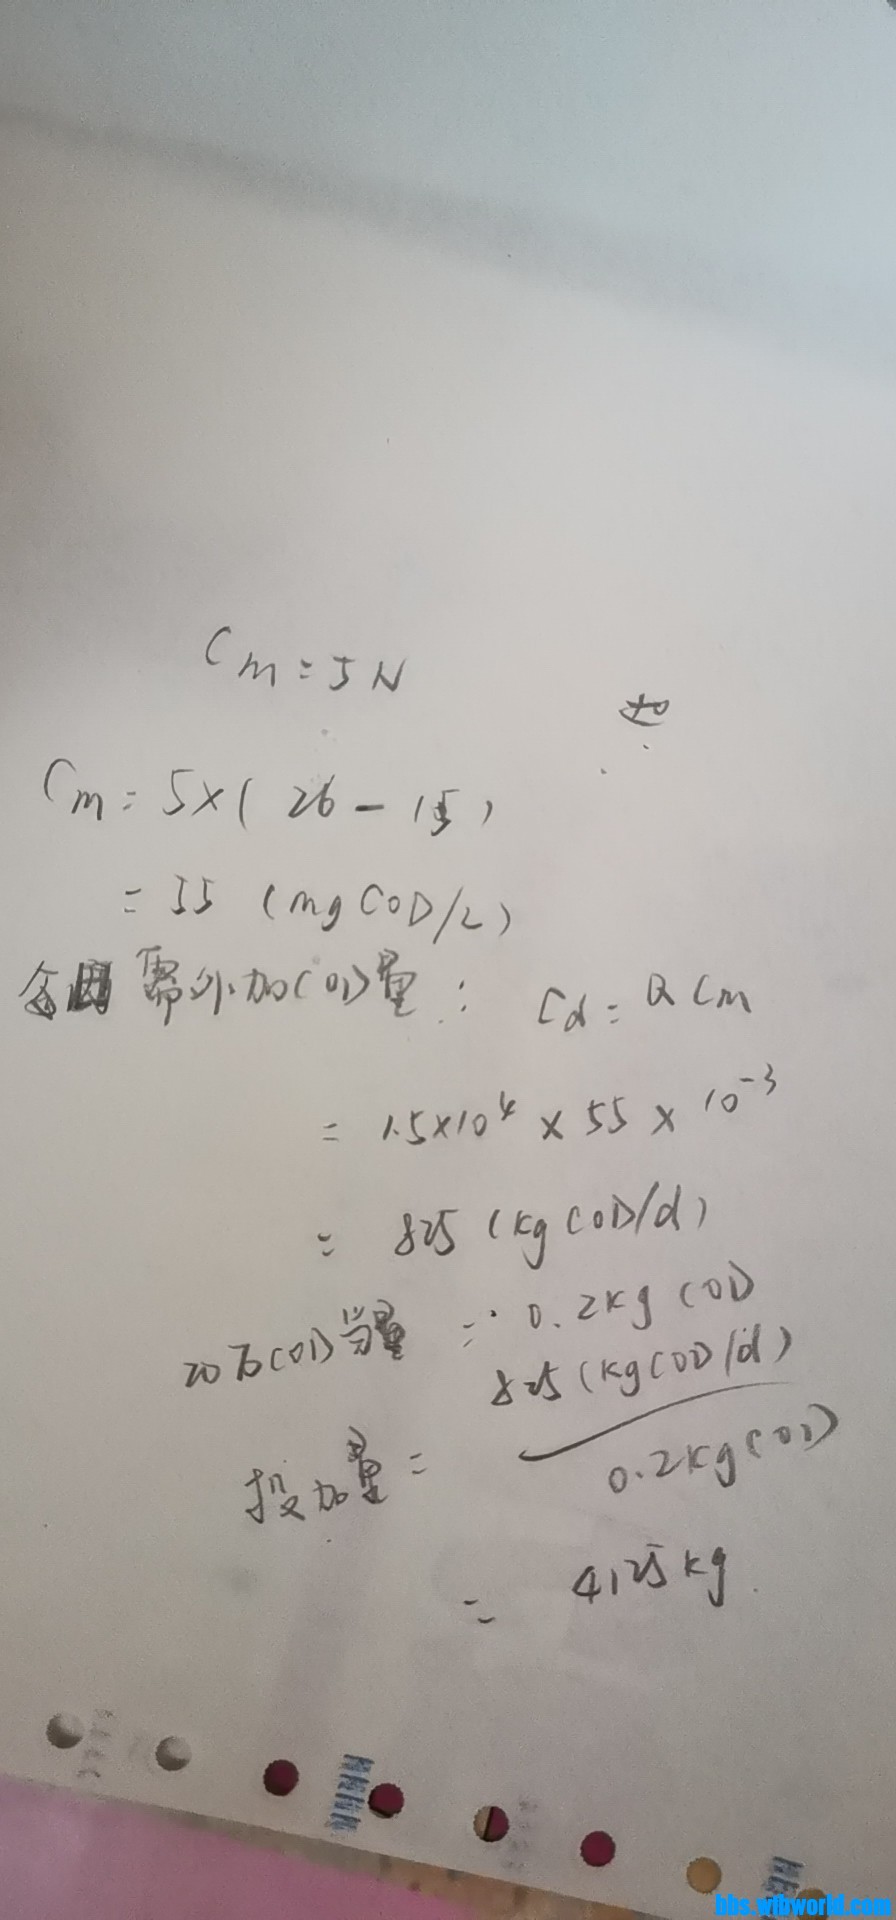 Cm=5N
Cm=5×(26-15)
=55 (mgCOD/L)
需外加COD量: Cd=QCm
=1.5×10⁴×55×10⁻³
=825(kgCOD/d)
20万COD当量=0.2kgCOD
投加量=825(kgCOD/d)/0.2kgCOD
=4125kg
bbs.wibworld.com